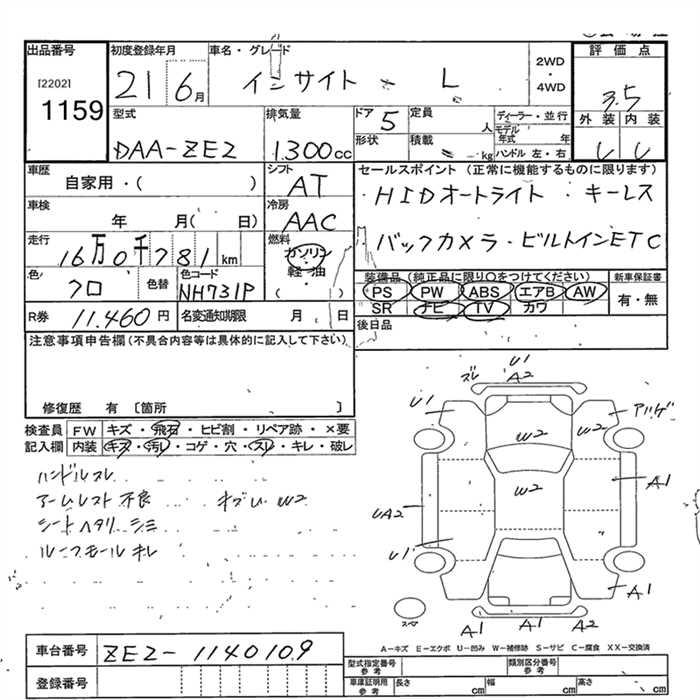 出品番号
[2202]
1159
初度登録年月
21 6月
車名・グレード
インサイト L
2WD
・
4WD
評価点
3.5
外装 内装
型式
DAA-ZE2
排気量
1.300cc
ドア 5
形状
定員 人
積載 kg
ディーラー・並行
モデル年式 年
ハンドル 左・右
車歴
自家用・( )
シフト
AT
車検
年 月( 日)
冷房
AAC
走行
16万0千781km
燃料
ガソリン
・
軽油
( )
色
クロ
色替
色コード
NH731P
R券 11.460円
名変通知期限 月 日
セールスポイント(正常に機能するものに限ります)
HIDオートライト・キーレス
バックカメラ・ビルトインETC
装備品(純正品に限り○をつけてください)
PS PW ABS エアB AW
SR ナビ TV カワ
新車保証書
有・無
後日品
注意事項申告欄(不具合内容等は具体的に記入して下さい)
修復歴 有 〔箇所 〕
検査員記入欄
FW キズ・飛石・ヒビ割・リペア跡・×要
内装 キズ・汚レ・コゲ・穴・スレ・キレ・破レ
ハンドルスレ
アームレスト不良
W2
シートヘタリ シミ
ルーフモールキレ
U1
ズレ A2
U1
W2
W2
アハゲ
W2
A1
UA2
U1
A1
A1 A1 A2
スペア
A-キズ E-エクボ U-凹み W-補修跡 S-サビ C-腐食 XX-交換済
車台番号 ZE2-1140109
登録番号
型式指定番号 参考
類別区分番号 参考
車庫証明用 参考
長さ cm 幅 cm 高さ cm